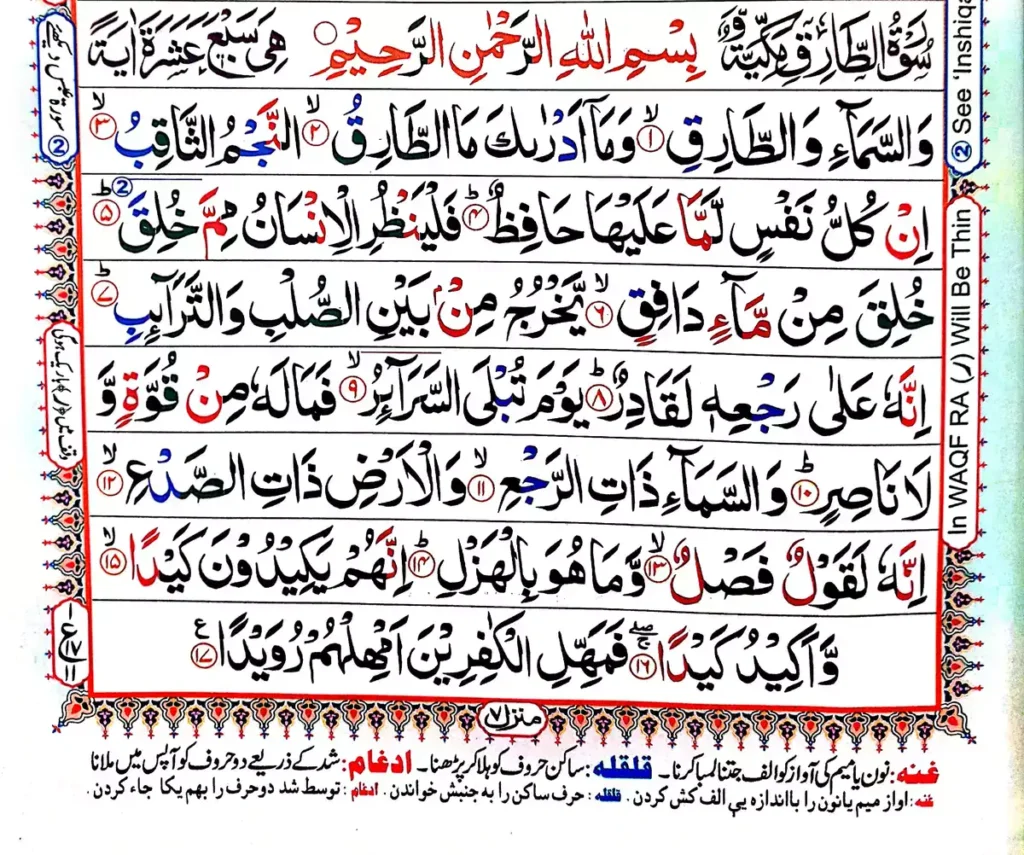 سُوْرَةُ الطَّارِقِ مَكِّيَّةٌ وَّ بِسْمِ اللهِ الرَّحْمٰنِ الرَّحِيْمِ هِىَ سَبْعَ عَشَرَةَ اٰيَةً
وَالسَّمَآءِ وَالطَّارِقِ ۙ﴿۱﴾ وَمَاۤ اَدْرٰىكَ مَا الطَّارِقُ ۙ﴿۲﴾ النَّجْمُ الثَّاقِبُ ۙ﴿۳﴾
اِنْ كُلُّ نَفْسٍ لَّمَّا عَلَيْهَا حَافِظٌ ؕ﴿۴﴾ فَلْيَنْظُرِ الْاِنْسَانُ مِمَّ خُلِقَ ؕ﴿۵﴾
خُلِقَ مِنْ مَّآءٍ دَافِقٍ ۙ﴿۶﴾ يَّخْرُجُ مِنْۢ بَيْنِ الصُّلْبِ وَالتَّرَآئِبِ ؕ﴿۷﴾
اِنَّهٗ عَلٰى رَجْعِهٖ لَقَادِرٌ ؕ﴿۸﴾ يَوْمَ تُبْلَى السَّرَآئِرُ ۙ﴿۹﴾ فَمَا لَهٗ مِنْ قُوَّةٍ وَّ
لَا نَاصِرٍ ؕ﴿۱۰﴾ وَالسَّمَآءِ ذَاتِ الرَّجْعِ ۙ﴿۱۱﴾ وَالْاَرْضِ ذَاتِ الصَّدْعِ ۙ﴿۱۲﴾
اِنَّهٗ لَقَوْلٌ فَصْلٌ ۙ﴿۱۳﴾ وَّمَا هُوَ بِالْهَزْلِ ؕ﴿۱۴﴾ اِنَّهُمْ يَكِيْدُوْنَ كَيْدًا ۙ﴿۱۵﴾
وَّاَكِيْدُ كَيْدًا ۚۖ﴿۱۶﴾ فَمَهِّلِ الْكٰفِرِيْنَ اَمْهِلْهُمْ رُوَيْدًا ﴿۱۷﴾ ع
منزل ۷
غنه: نون یا میم کی آواز کو الف جتنا لمبا کرنا۔ قلقله: ساکن حروف کو ہلا کر پڑھنا۔ ادغام: شد کے ذریعے دو حروف کو آپس میں ملانا
غنه: اواز میم یا نون را با اندازه یی الف کش کردن. قلقله: حرف ساکن را به جنبش خواندن. ادغام: توسط شد دو حرف را بهم یکا جاء کردن.
② See 'Inshiqa
In WAQF RA (ر) Will Be Thin